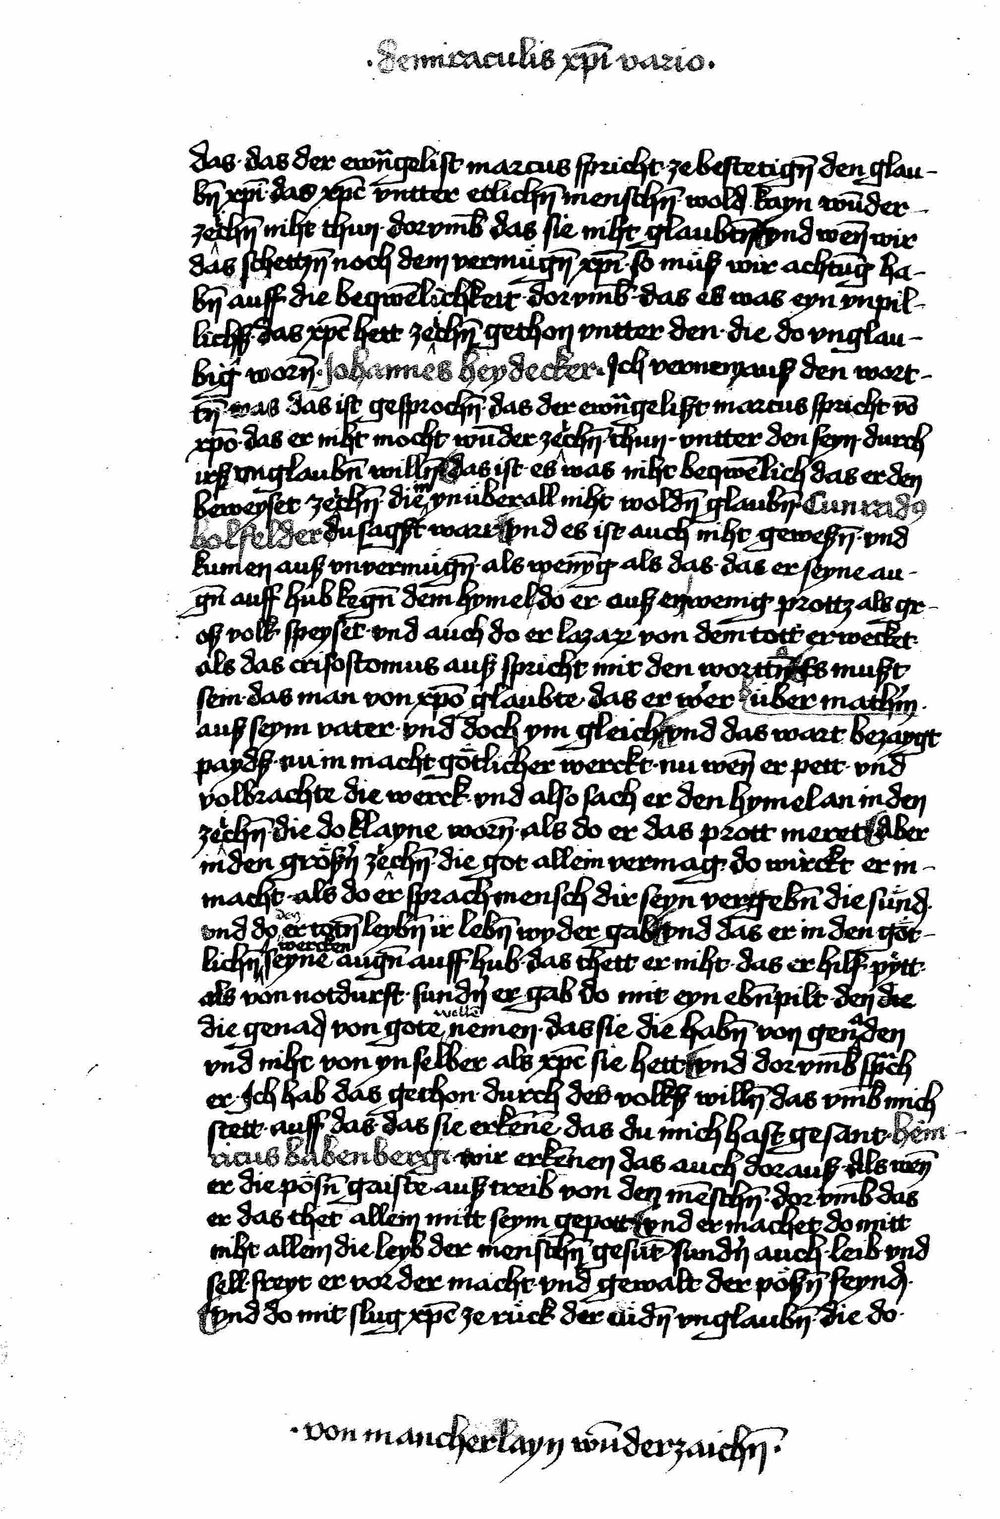 ·de miraculis xp̄i vario·
das· das der ewn̄gelist marcus spricht· ze bestetign̄ den glau-
bn̄ xp̄i· das xpc̄ vntter etlichn̄ menschn̄· wold kayn wūder-
zechn̄ niht thun· dorvmb̄ das sie niht glaubtn̄ vnd wen̄ wir
das schettzn̄ noch dem vermügn̄ xp̄i· so müß wir achtūg ha-
bn̄ auff die beqwēlichkeit· dorvmb̄· das es was eyn vnpil-
lichß· das xpc̄ hett zechn̄ gethon vntter den· die do vnglau-
biḡ worn̄· Johannes heydecker· Ich vernem auß den wort-
tn̄ was das ist gesprochn̄· das der ewn̄gelist marcus spricht vō
xpō· das er niht mocht wūder zechn̄ thun· vntter den seyn· durch
irß vnglaubn̄ willn̄ das ist· es was niht beqwēlich das er den
beweyset zechn̄· die im yn überall niht woldn̄ glaubn̄· Cunradꝰ
holfelder du sagst war vnd es ist auch niht geweßn̄· vnd
kumen auß vnvermügn̄· als wenyg als das· das er seyne au-
gn̄ auff hub kegn̄ dem hymel do er auß eym wenig prottz als gr-
oß volk speyset· vnd auch do er lazarꝫ von dem tott erwecket·
als das crisostomus auß spricht mit den worttn̄ Es mußt
sein· das man von xpō glaubte· das er wer über mathēm·
auß seym vater· vnd doch ym gleich vnd das wart bezaygt
paydß· nu in macht götlicher werckt· nu wen̄ er pett· vnd
volbrachte die werck· vnd also sach er den hymel an in den
zechn̄· die do klayne worn̄· als do er das prott meret Aber
in den größn̄ zechn̄· die got allein vermag· do würckt er in-
macht· als do er sprach mensch dir seyn vergebn̄ die sünd·
den
vnd do er totn̄ leybn̄ ir lebn̄ wyder gab vnd das er in den göt-
wercken
lichn̄ seyne augn̄ auff hub· das thett er niht· das er hilf pytt·
als von notdurft· sundn̄ er gab do mit eyn ebn̄pilt· den die
wellē
die genad von gote nemen· das sie die habn̄ von genaden
vnd niht von yn selber als xpc̄ sie hett vnd dorvmb̄ spr̄ch
er· Ich hab das gethon· durch des volkß willn̄ das vmb̄ mich
stett· auff das· das sie erkēne das du mich hast gesant· hein-
ricus babenberg· wir erkēnen das auch dorauß· Als wen̄
er die pösn̄ gaiste auß treib von den mēschn̄· dorvmb̄ das
er das thet allein mitt seym gepott vnd er machet do mitt
niht allein die leyb der menschn̄ gesūt sundn̄ auch· leib vnd
sell· freyt er vor der macht· vnd gewalt der pößn̄ feynd·
vnd do mit slug xpc̄ ze rück der iüdn̄ vnglaubn̄· die do·
·von mancherlayn wūderzaichn̄·